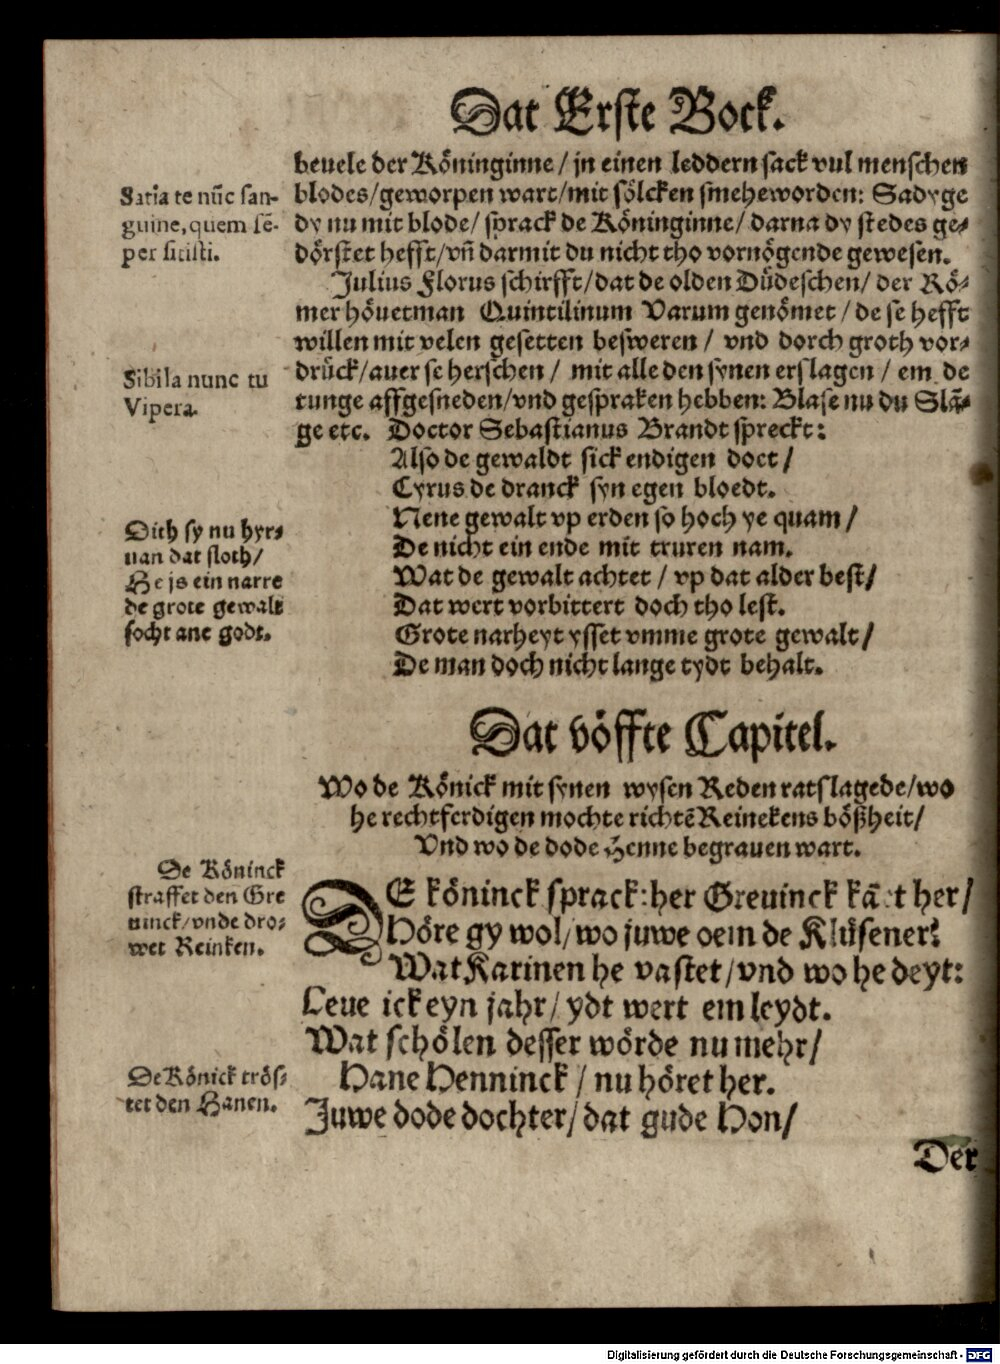 Dat Erste Bock.
beuele der Köninginne / jn einen leddern sack vul menschen
blodes/geworpen wart/mit sölcken smeheworden: Sadyge
dy nu mit blode/ sprack de Köninginne/ darna dy stedes ge-
dörstet hefft/vñ darmit du nicht tho vornögende gewesen.
Satia te nũc san-
guine, quem sẽ-
per sitisti.
Julius Florus schirfft/dat de olden Düdeschen/ der Rö-
mer höuetman Quintilinum Varum genömet / de se hefft
willen mit velen gesetten besweren / vnd dorch groth vor-
drück/auer se herschen / mit alle den synen erslagen / em de
tunge affgesneden/vnd gespraken hebben: Blase nu du Slã-
ge etc. Doctor Sebastianus Brandt spreckt:
Sibila nunc tu
Vipera.
Also de gewaldt sick endigen doet /
Cyrus de dranck syn egen bloedt.
Nene gewalt vp erden so hoch ye quam /
De nicht ein ende mit truren nam.
Wat de gewalt achtet / vp dat alder best/
Dat wert vorbittert doch tho lest.
Grote narheyt ysset vmme grote gewalt/
De man doch nicht lange tydt behalt.
Dith sy nu hyr-
uan dat sloth/
He js ein narre
de grote gewalt
socht ane godt.
Dat vöffte Capitel.
Wo de Könick mit synen wysen Reden ratslagede/wo
he rechtferdigen mochte richtẽ Reinekens bößheit/
Vnd wo de dode Henne begrauen wart.
De Köninck
straffet den Gre
uinck/vnde dro-
wet Reinken.
DE köninck sprack: her Greuinck kã t her/
Höre gy wol/wo juwe oem de Klüsener?
Wat Karinen he vastet/vnd wo he deyt:
Leue ick eyn jahr/ ydt wert em leydt.
Wat schölen desser wörde nu mehr/
Hane Henninck / nu höret her.
Juwe dode dochter/ dat gude Hon/
De Könick trös-
tet den Hanen.
Der
Digitalisierung gefördert durch die Deutsche Forschungsgemeinschaft - DFG